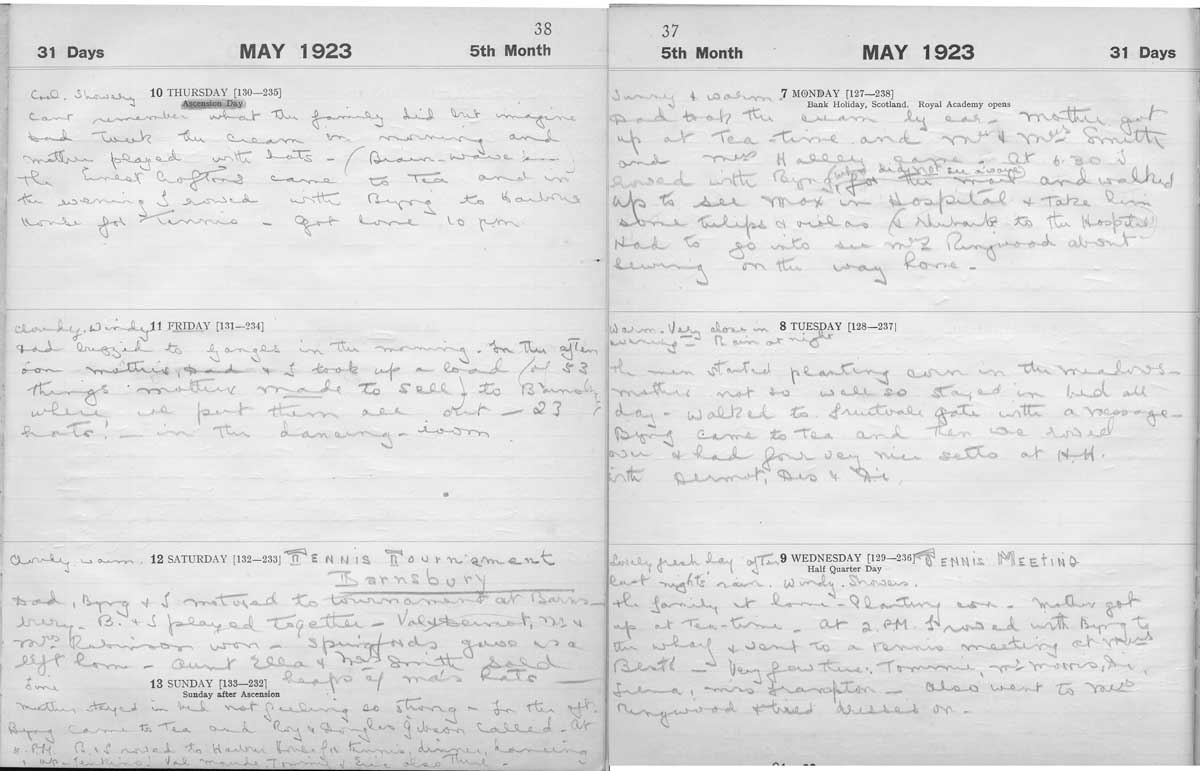 38
31 Days MAY 1923 5th Month
Cool. Showery 10 THURSDAY [130—235]
Ascension Day
what the family did but imagine
Dad took the cream in morning and
mother played with hats - (Brain-waves
the came to Tea and in
the evening I rowed with Byng to Harbour
House for Tennis - Got home 10 pm
Cloudy. Windy 11 FRIDAY [131—234]
Dad buzzed to Ganges in the morning. In the after
noon mother, Dad & I took up a load (of 53
things mother made to sell) to Barnsbury
where we put them all out - 23
hats! - in the dancing-room
warm. 12 SATURDAY [132—233] TENNIS TOURNAMENT
Barnsbury
Dad, Byng & I motored to tournament at Barns-
bury. B. & I played together - Val, Dermot, Mr &
Mrs Robinson won - Springfords gave us a
lift home - Aunt Ella & Mrs Smith sold
heaps of ma's hats
Fine 13 SUNDAY [133—232]
Sunday after Ascension
Mother stayed in bed not feeling so strong - In the aft.
Byng came to Tea and Roy & Douglas called. At
P.M. B. & I rowed to Harbour House for tennis, dinner, dancing
Val also there.
37
5th Month MAY 1923 31 Days
Sunny & warm. 7 MONDAY [127—238]
Bank Holiday, Scotland. Royal Academy opens
Dad took the cream by car - Mother got
up at Tea-time and Mr & Mrs Smith
and Mrs Halley came. At 6.30 I
rowed with Byng for the mail and walked
up to see Max in Hospital & take him
some tulips & violas (& rhubarb to the Hospital)
Had to go into see Mrs Ringwood about
sewing on the way home.
Warm. Very close in 8 TUESDAY [128—237]
evening - Rain at night
The men started planting corn in the meadows -
Mother not so well so stayed in bed all
day - Walked to Fruitvale gate with a message -
Byng came to tea and then we rowed
over & had four very nice setts at H.H.
with Dermot, Des & Di.
Lovely fresh day after 9 WEDNESDAY [129—236] TENNIS MEETING
last nights rain. Windy. Showers. Half Quarter Day
The family at home - Planting corn - Mother got
up at Tea-time - At 2. P.M. I rowed with Byng to
the wharf & went to a tennis meeting at
- Very few there: Tommie, Mr Morris, Di,
Mrs Frampton - Also went to Mrs
Ringwood & tried dresses on -